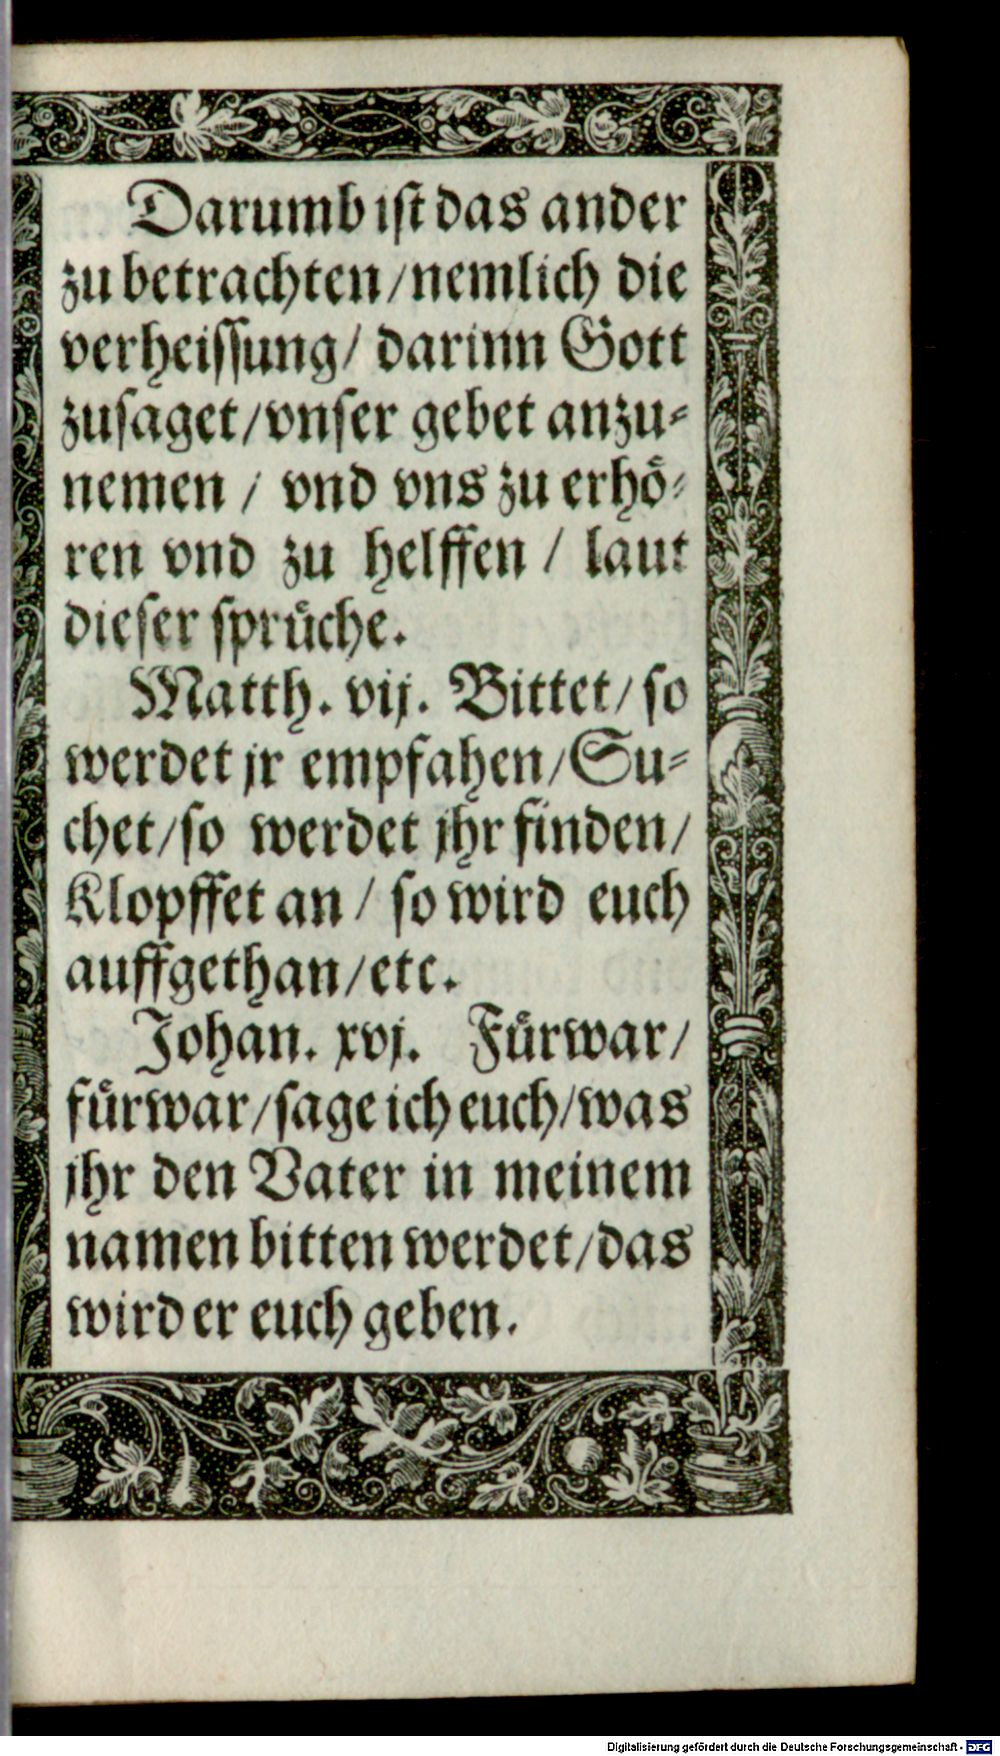 Darumb ist das ander
zu betrachten / nemlich die
verheissung / darinn Gott
zusaget / vnser gebet anzu⸗
nemen / vnd vns zu erhoͤ⸗
ren vnd zu helffen / laut
dieser spruͤche.
Matth. vij. Bittet / so
werdet jr empfahen / Su⸗
chet / so werdet jhr finden /
Klopffet an / so wird euch
auffgethan / etc.
Johan. xvj. Fuͤrwar /
fuͤrwar / sage ich euch / was
jhr den Vater in meinem
namen bitten werdet / das
wird er euch geben.
Digitalisierung gefördert durch die Deutsche Forschungsgemeinschaft - DFG